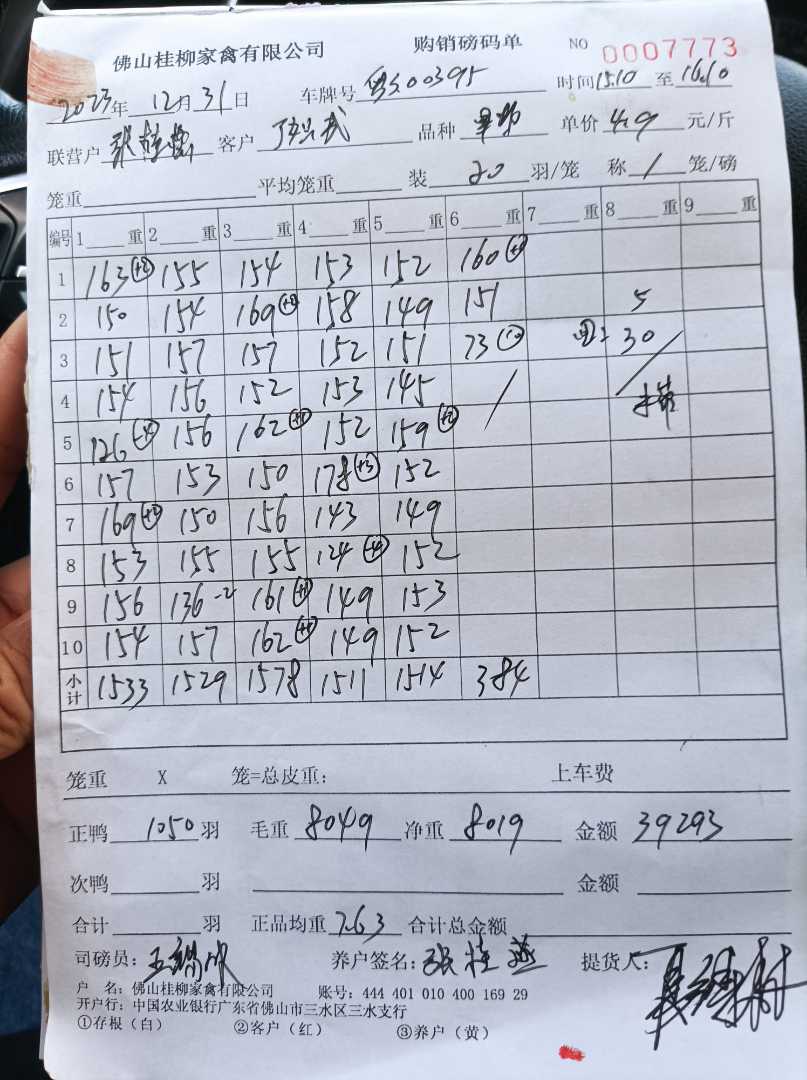 佛山桂柳家禽有限公司 购销磅码单 NO 0007773
2023年 12月 31日 车牌号 00395 时间 15.10 至 16.10
联营户 张桂燕 客户 品种 单价 4.9 元/斤
笼重 平均笼重 装 20 羽/笼 称 1 笼/磅
编号 1 重 2 重 3 重 4 重 5 重 6 重 7 重 8 重 9 重
1 163 (+2) 155 154 153 152 160
2 150 154 169 158 149 151 5
3 151 157 157 152 151 73 30
4 154 156 152 153 145
5 126 (-4) 156 162 (+1) 152 159 (+2)
6 157 153 150 178 (+3) 152
7 169 150 156 143 149
8 153 155 155 124 152
9 156 136 -2 161 (+1) 149 153
10 154 157 162 149 152
小计 1533 1529 1578 1511 1514 384
笼重 X 笼=总皮重： 上车费
正鸭 1050 羽 毛重 8049 净重 8019 金额 39293
次鸭 羽 金额
合计 羽 正品均重 7.63 合计总金额
司磅员： 养户签名：张桂燕 提货人：
户 名：佛山桂柳家禽有限公司 账号：444 401 010 400 169 29
开户行：中国农业银行广东省佛山市三水区三水支行
①存根（白） ②客户（红） ③养户（黄）